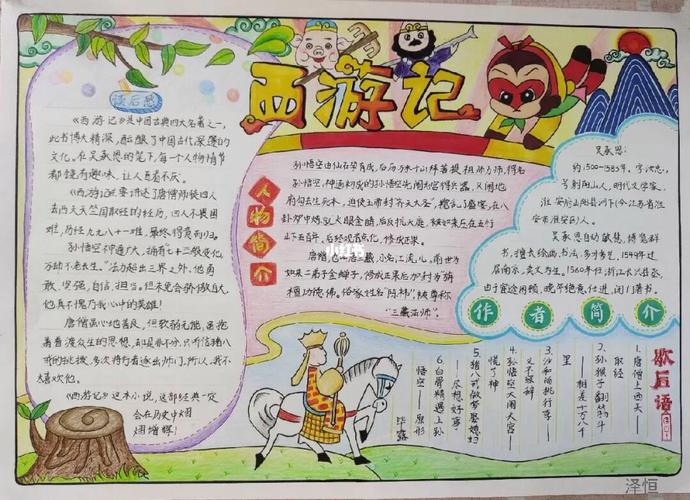 西游记
读后感
《西游记》是中国古典四大名著之一，
此书博大精深，酝酿了中国古代深蓬的
文化。在吴承恩的笔下，每个人物情节
都饶有趣味，让人百看不厌。
《西游记》主要讲述了唐僧师徒四人
去西天天竺国取经的经历，四人不畏困
难，历经九九八十一难，最终得胜而归。
孙悟空神通广大，拥有"七十二般变化
力却不老长生。"法力超出三界之外，他勇
敢、坚强、自信、担当。但未免会骄傲自大
他真不愧乃我心中的英雄！
唐僧虽心地善良，但软弱无能，虽抱
着普渡众生的思想，却是非不分，只听信猪八
戒的挑拨，多次将行者逐出师门，所以，我不
太喜欢他。
《西游记》这本小说，这部经典一定
会在历史中熠
熠增辉！
人物简介
孙悟空由仙石孕育成，后历万水千山拜菩提祖师为师，得名
孙悟空，神通初成的孙悟空先闹龙宫得兵器，又闹地
府勾去生死本，迫使玉帝封齐天大圣，
山下五百年，后经观音点化，修成正果。
小红书
吴承恩：
约1500-1583年。字汝忠，
号射阳山人，明代文学家，
淮安府山阳县河下(今江苏省淮
安市淮安区)人。
吴承恩自幼敏慧，博览群
书，擅长绘画、书法，多才多艺，1549年迁
居南京，卖文为生，1560年任浙江长兴县丞
由于宦途困顿，晚年绝意仕进，闭门著书。
作者简介
歇后语
1.唐僧上西天——
取经
2.孙猴子翻筋斗
——相差十万八千
里
3.沙和尚挑行李——
义不容辞
4.孙悟空大闹天宫——
慌了神
5.猪八戒做梦娶媳妇
——尽想好事
6.白骨精遇上孙
悟空——原形
毕露
泽恒